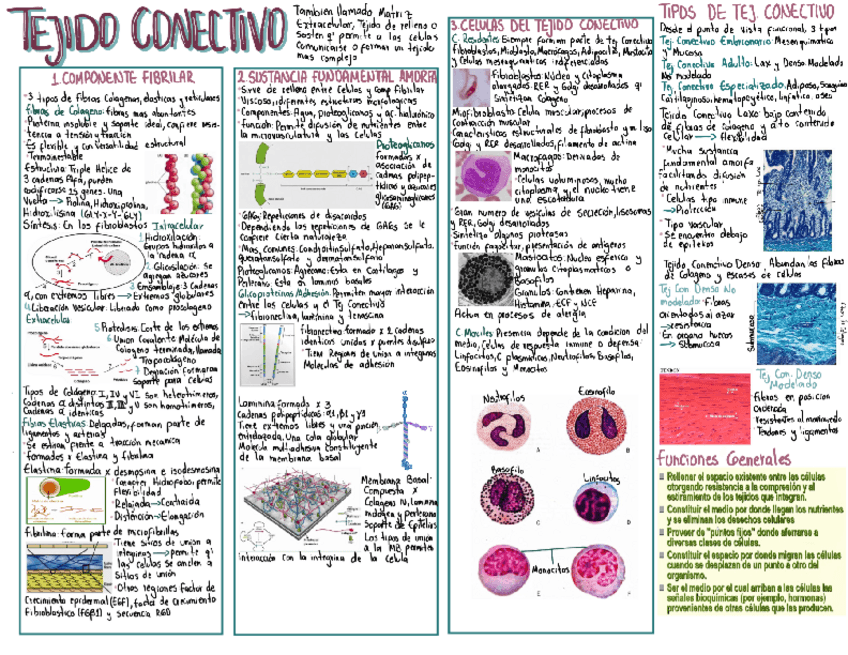 TEJIDO CONECTIVO
También llamado Matriz
Extracelular, Tejido de relleno o
Sosten q' permite a las celulas
Comunicarse o formar un tejido
mas complejo
1. COMPONENTE FIBRILAR
3 tipos de fibras Colagenas, elasticas y reticulares
Fibras de Colageno: fibras mas abundantes
Proteina insoluble y soporte ideal, confiere resis-
tencia a tensión y tracción
Es flexible y con versatilidad estructural
Termoestable
Estructura: Triple Helice de
3 cadenas
codificarse 25 genes. Una
Vuelta → Prolina, Hidroxiprolina,
Hidroxilisina (GLY-X-Y-GLY)
Síntesis: En los fibroblastos Intracelular
1 Hidroxilación
Grupos hidroxilos a
la cadena α
2 Glicosilación: Se
agregan azucares
3 Ensamblaje: 3 Cadenas
α, con extremos libres → Extremos globulares
4 Liberación vesicular: Liberado como procolageno
Extracelular
5 Proteolisis: Corte de los extremos
6 Union Covalente: Molécula de
Colageno terminada, llamada
Tropocolágeno
7 Agregación: formaran
soporte para Celulas
Tipos de Colágeno: I, IV y VI son heterotrimeros,
Cadenas α distintas II, III y V son homotrimeros,
Cadenas α identicas
Fibras Elasticas: Delgadas, forman parte de
ligamentos y arterias
Se estiran frente a traccion mecanica
formados x Elastina y fibrilina
Elastina: formada x desmosina e isodesmosina
Caracter Hidrofobo, permite
flexibilidad
Relajada → Contraida
Distención → Elongación
Fibrilina: forma parte de microfibrillas
Tiene sitios de union a
integrinas → permite q'
las celulas se anclen a
Sitios de unión
Otras regiones factor de
Crecimiento epidermal (EGF), factor de Crecimiento
Fibroblastico y secuencia RGD
2. SUSTANCIA FUNDAMENTAL AMORFA
Sirve de relleno entre Celulas y Comp fibrilar
Viscoso, diferentes estructuras morfologicas
Componentes: Agua, proteoglicanos y ac. hialurónico
función: Permite difusión de nutrientes entre
la microvasculatura y las Celulas
Proteoglicanos
formados x
asociación de
cadenas polipep-
tidicas y azucares
glicosaminoglicanos
(GAGs)
GAGs: Repeticiones de disacaridos
Dependiendo las repeticiones de GAGs se le
confiere cierta naturaleza
Mas comunes: Condroitinsulfato, Heparansulfato,
queratansulfato y dermatansulfato
Proteoglicanos: Agrecano: Esta en Cartilagos y
Perlecano: Esta en laminas basales
Glicoproteinas Adhesión: Permiten mayor interacción
Entre las celulas y el Tej Conectivo
→ Fibronectina, laminina y tenascina
Fibronectina formado x 2 cadenas
identicas unidas x puentes disulfuro
Tiene Regiones de union a integrinas
Moleculas de adhesión
Laminina: Formado x 3
Cadenas polipeptidicas: α1, β1 y γ1
Tiene extremos libres y una porción
enrollada, Una cola globular
Molécula multiadhesiva Constituyente
de la membrana basal
Membrana Basal:
Compuesta x
Colageno IV, laminina
nidogeno y perlecano
Soporte de Epitelios
Los tipos de union
a la MB permiten
interacción con la integrina de la celula
3. CELULAS DEL TEJIDO CONECTIVO
C. Residentes: Siempre forman parte de tej Conectivo
fibroblastos, Miofibroblasto, Macrófagos, Adipocitos, Mastocitos
y Celulas mesenquimaticas indiferenciadas
Fibroblastos: Nucleo y citoplasma
alargados. RER y Golgi desarrollados q'
Sintetizan Colageno
Miofibroblastos: Celula muscular, procesos de
Contraccion muscular
Caracteristicas estructurales de fibroblasto y m liso
Golgi y RER desarrollados, filamento de actina
Macrófagos: Derivados de
monocitos
Celulas voluminosas, mucho
citoplasma y el nucleo tiene
una escotadura
Gran numero de vesiculas de secreción, lisosomas
y RER, Golgi desarrollados
Sintetiza algunas proteasas
Función fagocitar, presentación de antigenos
Mastocitos: Nucleo esferico y
granulos citoplasmaticos
Basofilos
Granulos: Contienen Heparina,
Histamina, ECF y NCF
Actua en procesos de alergia
C Moviles: Presencia depende de la condición del
medio, Celulas de respuesta inmune o defensa:
Linfocitos, C plasmaticas, Neutrofilos, Basofilos,
Eosinofilos y Monocitos
Neutrofilos
Eosinofilo
A
B
Basofilo
Linfocitos
C
D
Monocitos
E
F
TIPOS DE TEJ. CONECTIVO
Desde el punto de vista funcional, 3 tipos
Tej Conectivo Embrionario: Mesenquimatico
y Mucoso
Tej Conectivo Adulto: Laxo y Denso Modelado
No modelado
Tej Conectivo Especializado: Adiposo, Sanguineo
Cartilaginoso, hematopoyetico, linfatico, oseo
Tejido Conectivo Laxo: bajo contenido
de fibras de colageno y alto contenido
Celular → flexibilidad
Mucha sustancia
fundamental amorfa
facilitando difusión
de nutrientes
Celulas tipo inmune
→ Protección
Tipo vascular
Se encuentra debajo
de epitelios
Tejido Conectivo Denso: Abundan las fibras
de Colageno y escasez de celulas
Tej Con Denso No
modelado: Fibras
orientadas al azar
→ resistencia
En organos huecos
→ Submucosa
Submucosa
Tej Con. Denso
Modelado
Fibras en posición
Ordenada
Tendones y ligamentos
Funciones Generales
Rellenar el espacio existente entre las células
otorgando resistencia a la compresión y al
estiramiento de los tejidos que integran.
Constituir el medio por donde llegan los nutrientes
y se eliminan los desechos celulares
Proveer de "puntos fijos" donde aferrarse a
diversas clases de células.
Constituir el espacio por donde migran las células
cuando se desplazan de un punto a otro del
organismo.
Ser el medio por el cual arriban a las células las
señales bioquímicas (por ejemplo, hormonas)
provenientes de otras células que las producen.